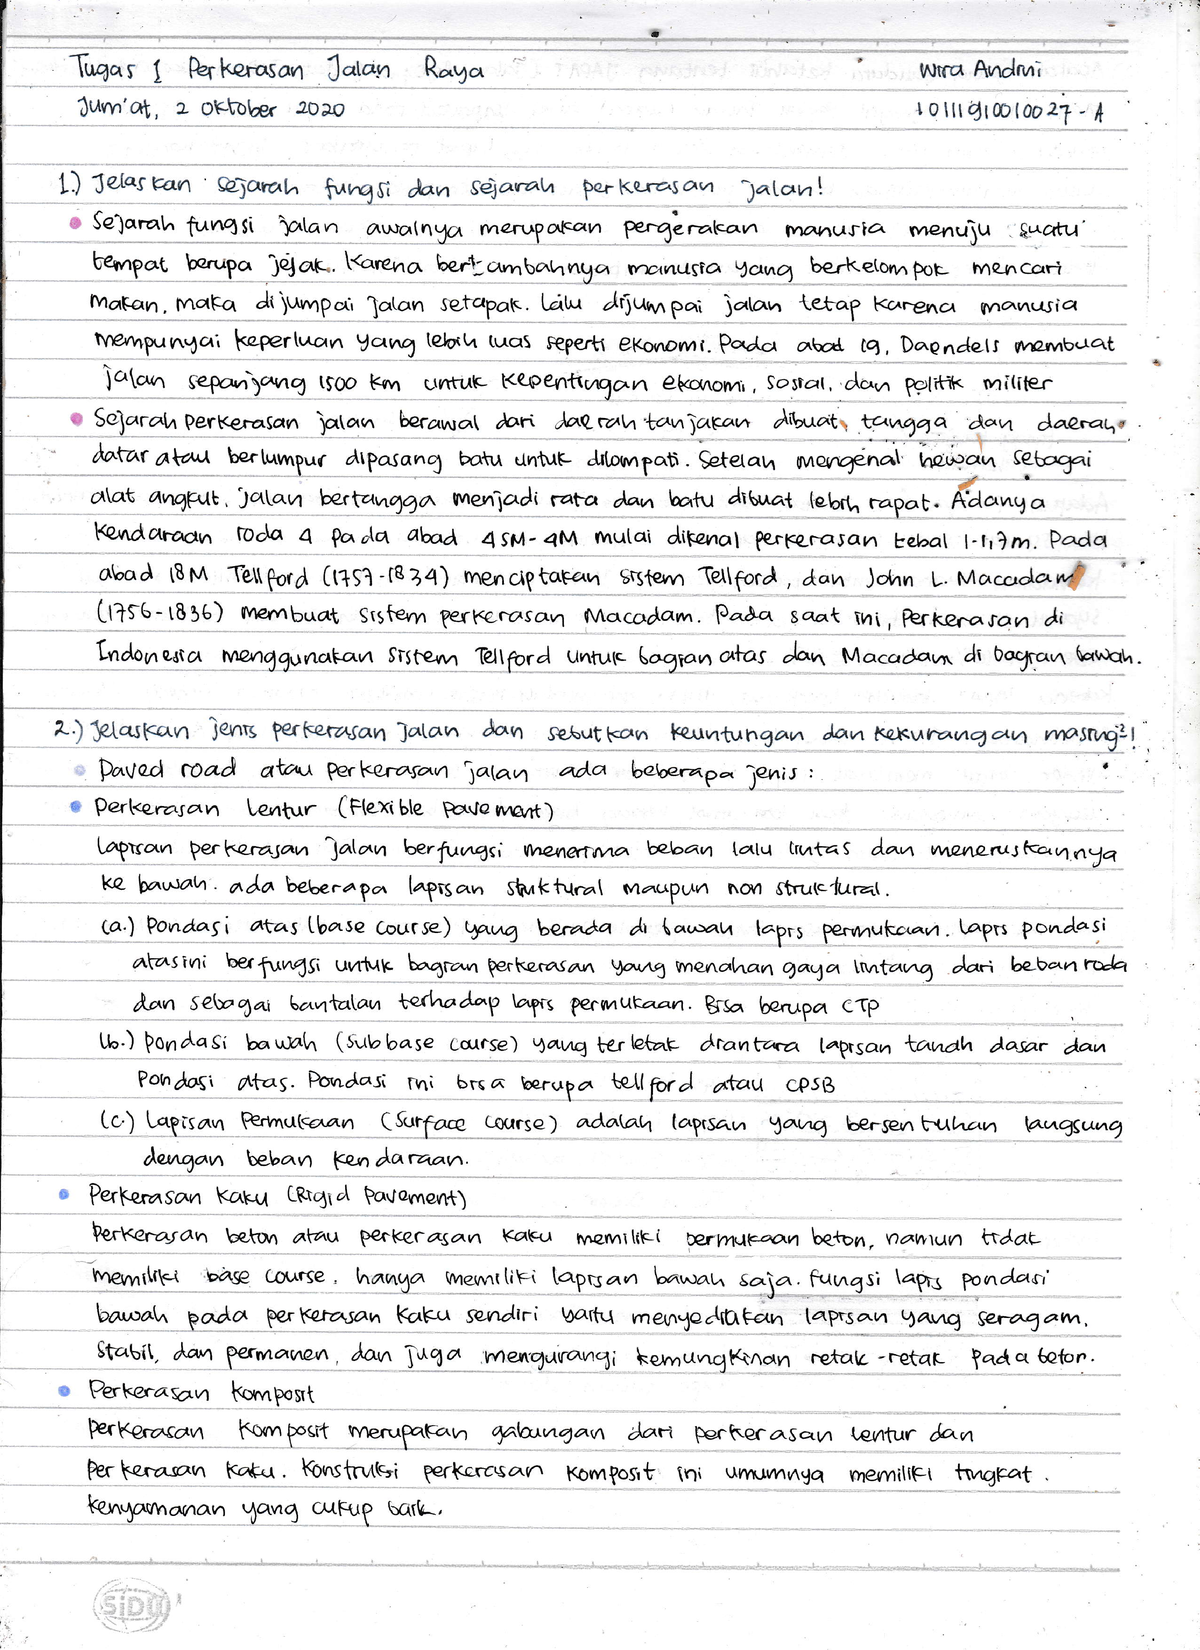 Tugas 1 Perkerasan Jalan Raya
Wira Andini
Jum'at, 2 Oktober 2020
10111910010027 - A
1.) Jelaskan sejarah fungsi dan sejarah perkerasan jalan!
Sejarah fungsi jalan awalnya merupakan pergerakan manusia menuju suatu
tempat berupa jejak. Karena bertambahnya manusia yang berkelompok mencari
makan, maka dijumpai jalan setapak. Lalu dijumpai jalan tetap karena manusia
mempunyai keperluan yang lebih luas seperti ekonomi. Pada abad 19, Daendels membuat
jalan sepanjang 1500 km untuk kepentingan ekonomi, sosial, dan politik militer
Sejarah perkerasan jalan berawal dari daerah tanjakan dibuat tangga dan daerah
datar atau berlumpur dipasang batu untuk dilompati. Setelah mengenal hewan sebagai
alat angkut, jalan bertangga menjadi rata dan batu dibuat lebih rapat. Adanya
kendaraan roda 4 pada abad 4SM-4M mulai dikenal perkerasan tebal 1-1,7m. Pada
abad 18M Tellford (1757-1834) menciptakan sistem Tellford, dan John L. Macadam
(1756-1836) membuat sistem perkerasan Macadam. Pada saat ini, Perkerasan di
Indonesia menggunakan sistem Tellford untuk bagian atas dan Macadam di bagian bawah.
2.) Jelaskan jenis perkerasan jalan dan sebutkan keuntungan dan kekurangan masing²!
Paved road atau perkerasan jalan ada beberapa jenis :
Perkerasan lentur (Flexible Pavement)
Lapisan perkerasan jalan berfungsi menerima beban lalu lintas dan meneruskannya
ke bawah. ada beberapa lapisan stuktural maupun non struktural.
(a.) Pondasi atas (base course) yang berada di bawah lapis permukaan. Lapis pondasi
atas ini berfungsi untuk bagian perkerasan yang menahan gaya lintang dari beban roda
dan sebagai bantalan terhadap lapis permukaan. Bisa berupa CTP
(b.) Pondasi bawah (subbase course) yang terletak diantara lapisan tanah dasar dan
Pondasi atas. Pondasi ini bisa berupa tellford atau CPSB
(c.) Lapisan Permukaan (Surface Course) adalah lapisan yang bersentuhan langsung
dengan beban kendaraan.
Perkerasan Kaku (Rigid Pavement)
Perkerasan beton atau perkerasan kaku memiliki permukaan beton, namun tidak
memiliki base course, hanya memiliki lapisan bawah saja. Fungsi lapis pondasi
bawah pada perkerasan kaku sendiri yaitu menyediakan lapisan yang seragam,
stabil, dan permanen, dan juga mengurangi kemungkinan retak-retak pada beton.
Perkerasan Komposit
Perkerasan Komposit merupakan gabungan dari perkerasan lentur dan
Perkerasan kaku. Konstruksi perkerasan komposit ini umumnya memiliki tingkat
kenyamanan yang cukup baik.
SiDU